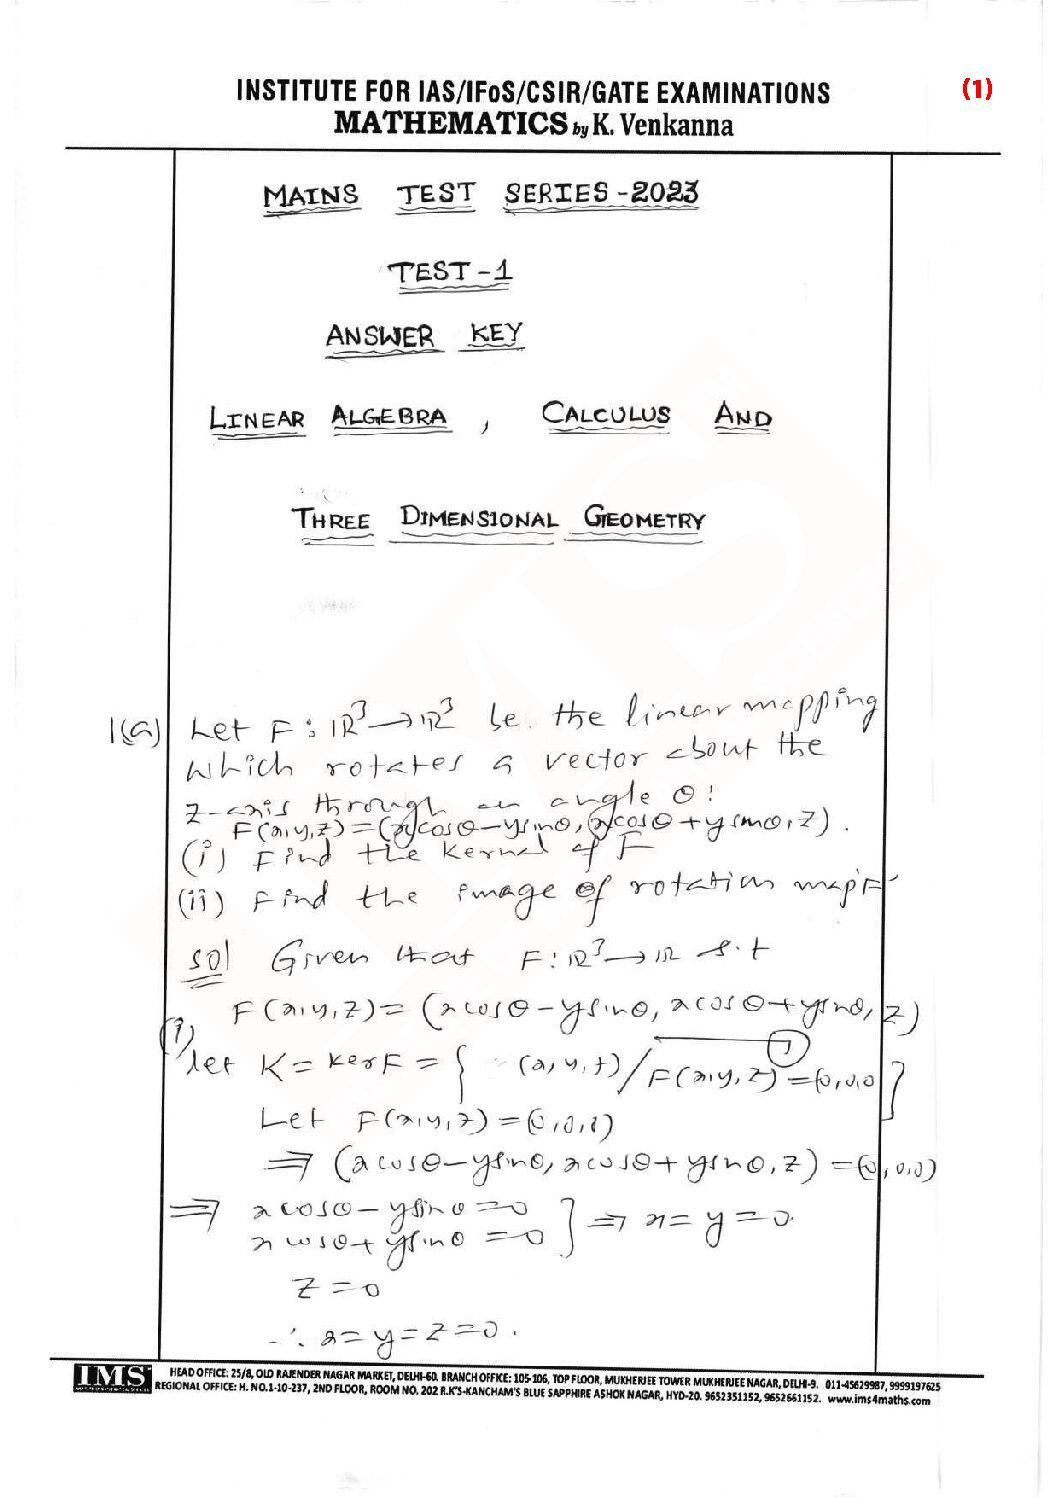 INSTITUTE FOR IAS/IFoS/CSIR/GATE EXAMINATIONS
(1)
MATHEMATICS by K. Venkanna
MAINS TEST SERIES-2023
TEST-1
ANSWER KEY
LINEAR ALGEBRA, CALCULUS AND
THREE DIMENSIONAL GEOMETRY
1(a) Let F : ℝ³→ℝ³ be the linear mapping
which rotates a vector about the
z-axis through an angle θ:
F(x,y,z)=(xcosθ-ysinθ, xcosθ+ysinθ, z).
(i) Find the kernel of F
(ii) Find the image of rotation map F
sol Given that F:ℝ³→ℝ s.t
F(x,y,z)=(xcosθ-ysinθ, xcosθ+ysinθ, z)
(i)
let K = kerF = { (x,y,z)/F(x,y,z)=(0,0,0)}
Let F(x,y,z)=(0,0,0)
⇒ (xcosθ-ysinθ, xcosθ+ysinθ, z)=(0,0,0)
⇒ xcosθ-ysinθ=0
xcosθ+ysinθ=0 ] ⇒ x=y=0.
z=0
∴ x=y=z=0.
IMS HEAD OFFICE: 25/8, OLD RAJENDER NAGAR MARKET, DELHI-60. BRANCH OFFICE: 105-106, TOP FLOOR, MUKHERJEE TOWER MUKHERJEE NAGAR, DELHI-9. 011-45629987, 9999197625
REGIONAL OFFICE: H. NO.1-10-237, 2ND FLOOR, ROOM NO. 202 R.K'S-KANCHAM'S BLUE SAPPHIRE ASHOK NAGAR, HYD-20. 9652351152, 9652661152. www.ims4maths.com